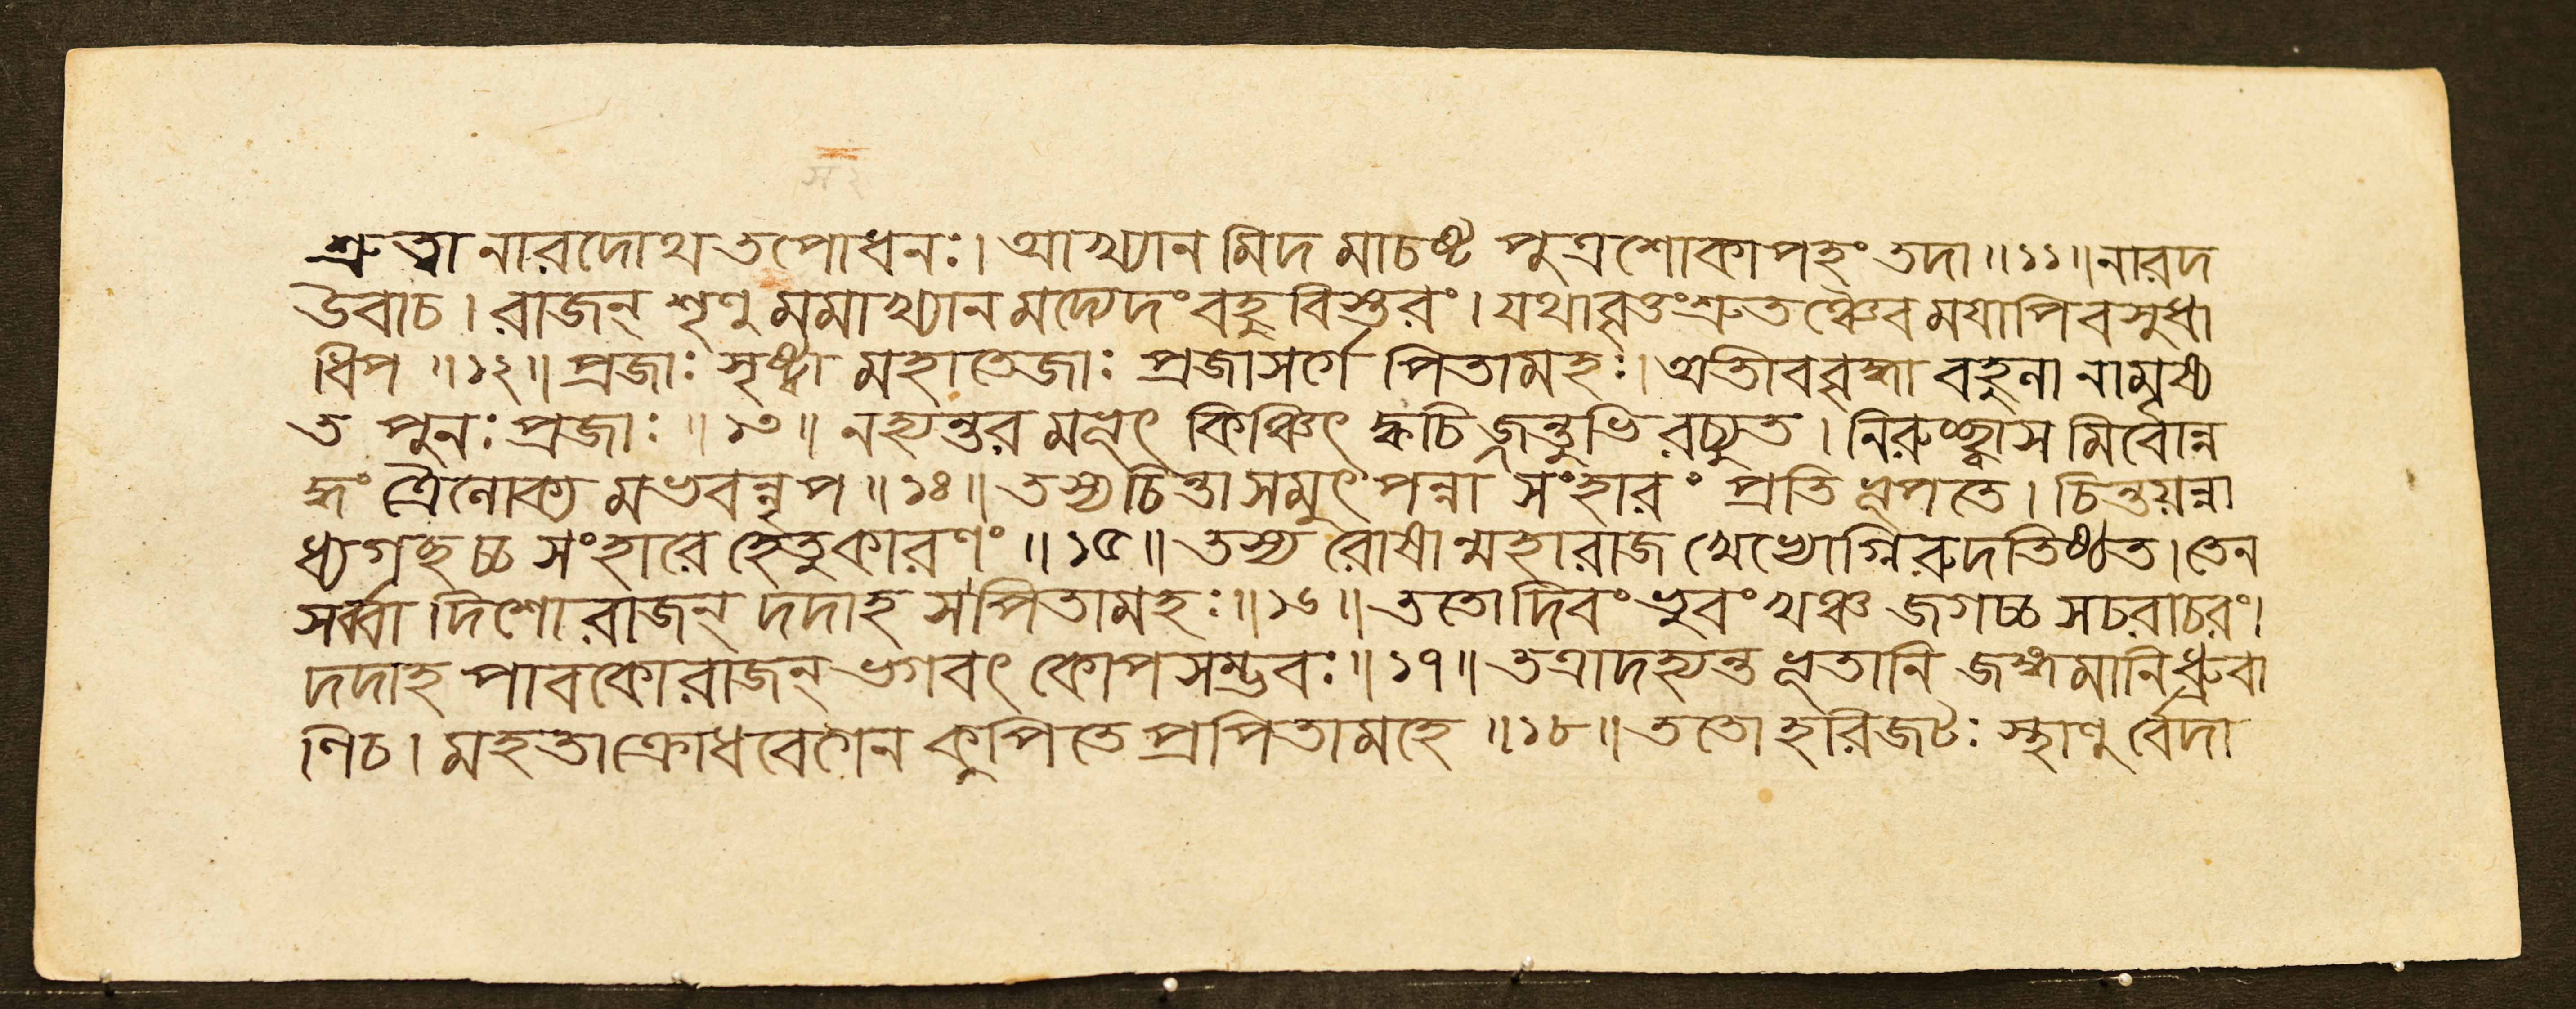 শ্রুত্বা নারদোথ তপোধনঃ। আখ্যান মিদ মাচষ্ট পুত্রশোকাপহং তদা॥১১॥ নারদ
উবাচ। রাজন্ শৃণু মমাখ্যান মদ্যেদং বহু বিস্তরং। যথাবৃত্তং শ্রুতঞ্চৈব ময়াপি বসুধা
ধিপ॥১২॥ প্রজাঃ সৃষ্ট্বা মহাতেজাঃ প্রজাসর্গে পিতামহঃ। অতীববৃদ্ধা বহুলা নামৃষ্য
ত পুনঃ প্রজাঃ॥১৩॥ নহ্যন্তর মভূৎ কিঞ্চিৎ ক্বচি জ্জন্তুভি রচ্যুত। নিরুচ্ছ্বাস মিবোন্ন
দ্ধং ত্রৈলোক্য মভবন্নৃপ॥১৪॥ তস্য চিন্তা সমুৎপন্না সংহারং প্রতি ভূপতে। চিন্তয়ন্না
ধ্যগছচ্চ সংহারে হেতুকারণং॥১৫॥ তস্য রোষান্মহারাজ খেখ্যোগ্নিরুদতিষ্ঠত। তেন
সর্ব্বা দিশো রাজন্ দদাহ স পিতামহঃ॥১৬॥ ততো দিবং ভুবং খঞ্চ জগচ্চ সচরাচরং।
দদাহ পাবকো রাজন্ ভগবৎ কোপসম্ভবঃ॥১৭॥ তত্রাদহ্যন্ত ভূতানি জঙ্গমানি ধ্রুবা
ণিচ। মহতা ক্রোধবেগেন কুপিতে প্রপিতামহে॥১৮॥ ততো হরিজটঃ স্থাণু র্বেদা